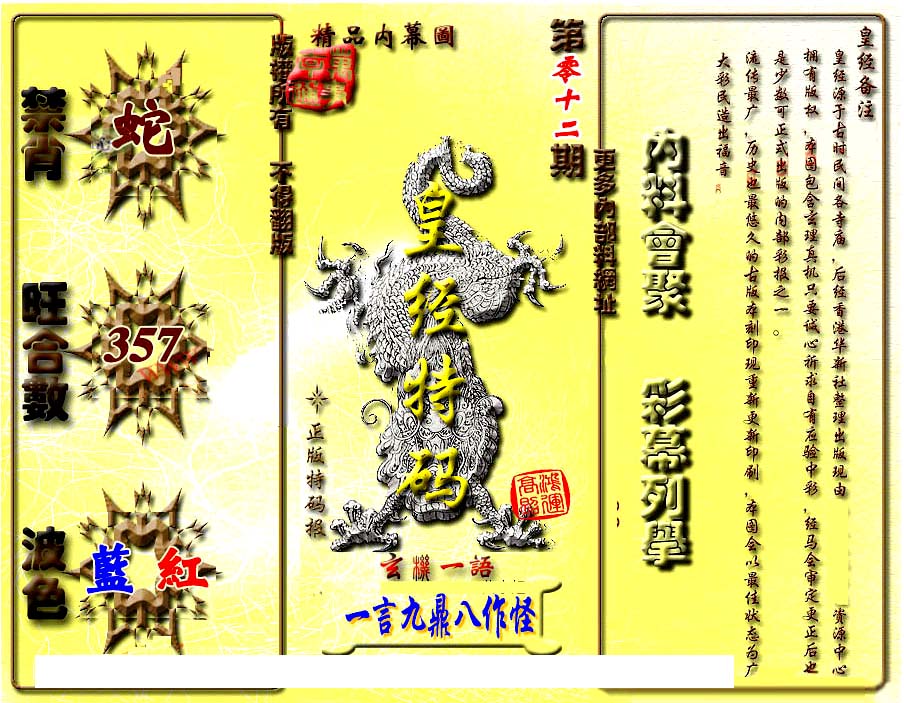 精品内幕圖
第零十二期
版權所有　不得翻版
更多內部料網址
禁肖
蛇
旺合數
357
波色
藍 紅
皇经特码
正版特码报
鴻運高照
玄機一語
一言九鼎八作怪
內料會聚
彩幕列舉
皇经备注
皇经源于古时民间各寺庙，后经香港华新社整理出版现由
资源中心
拥有版权，本图包含玄理真机只要诚心祈求自有应验中彩，经马会审定更正后也
是少数可正式出版的内部彩报之一。
流传最广，历史也最悠久的古版本刻印现重新更新印刷，本图会以最佳状态为广
大彩民造出福音